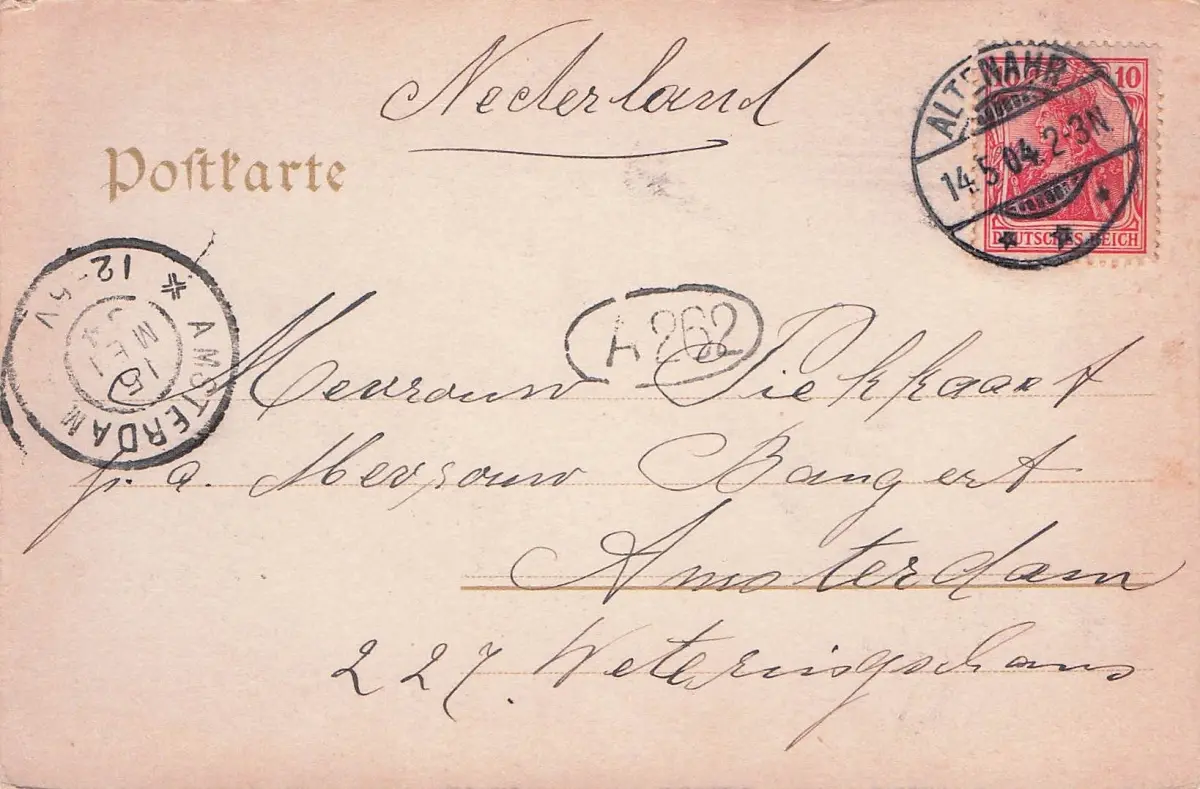 Nederland
Postkarte
10
DEUTSCHES REICH
ALTENAHR
14.5.04. 2-3N
AMSTERDAM
12-6V
15 MEI
A262
Mevrouw Piekkaart
p. a. Mevrouw Bangert
Amsterdam
227. Weteringschans